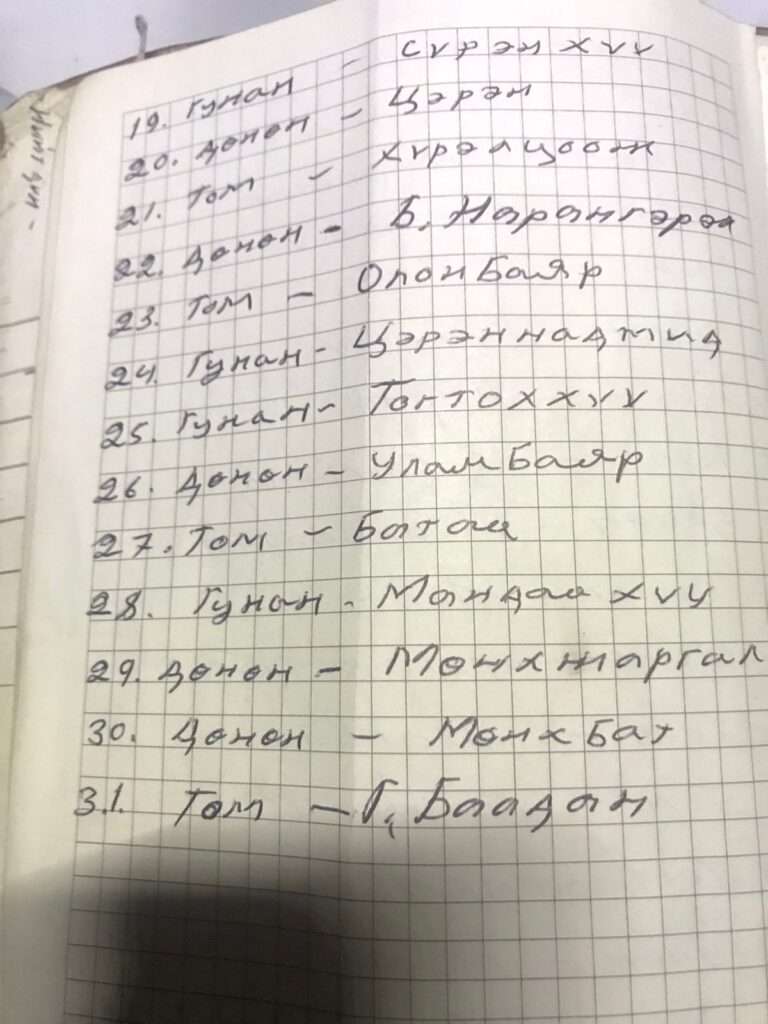 19. Гунан - Сүрэнхүү
20. Дөнөн - Цэрэн
21. Том - Хүрэлцоож
22. Дөнөн - Б. Нарангэрэл
23. Том - Олонбаяр
24. Гунан - Цэрэннадмид
25. Гунан - Тогтоххүү
26. Дөнөн - Уламбаяр
27. Том - Батаа
28. Гунан - Мандалхүү
29. Дөнөн - Мөнхжаргал
30. Дөнөн - Мөнхбат
31. Том - Г. Баадан